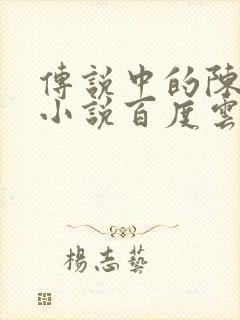 傳說中的陳
小說百度雲
楊志藝